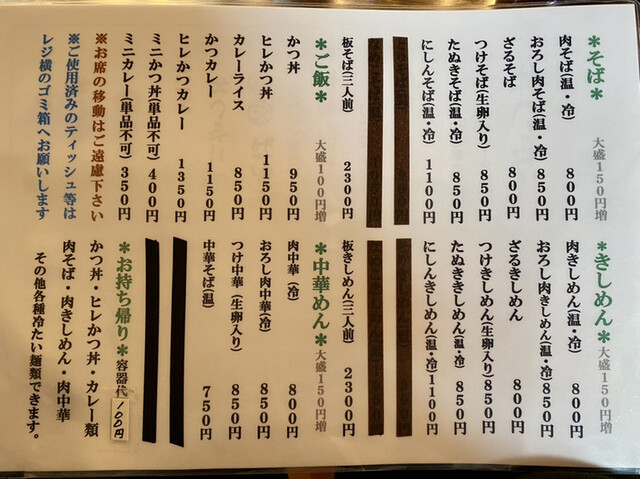 ＊そば＊ 大盛150円増
肉そば(温・冷) 800円
おろし肉そば(温・冷) 850円
ざるそば 800円
つけそば(生卵入り) 850円
たぬきそば(温・冷) 850円
にしんそば(温・冷) 1100円
板そば(三人前) 2300円
＊ご飯＊ 大盛100円増
かつ丼 950円
ヒレかつ丼 1150円
カレーライス 850円
かつカレー 1150円
ヒレかつカレー 1350円
ミニかつ丼(単品不可) 400円
ミニカレー(単品不可) 350円
※お席の移動はご遠慮下さい
※ご使用済みのティッシュ等は
レジ横のゴミ箱へお願いします
＊きしめん＊ 大盛150円増
肉きしめん(温・冷) 800円
おろし肉きしめん(温・冷) 850円
ざるきしめん 800円
つけきしめん(生卵入り) 850円
たぬききしめん(温・冷) 850円
にしんきしめん(温・冷) 1100円
板きしめん(三人前) 2300円
＊中華めん＊ 大盛150円増
肉中華(冷) 800円
おろし肉中華(冷) 850円
つけ中華(生卵入り) 850円
中華そば(温) 750円
＊お持ち帰り＊ 容器代 100円
かつ丼・ヒレかつ丼・カレー類
肉そば・肉きしめん・肉中華
その他各種冷たい麺類できます。